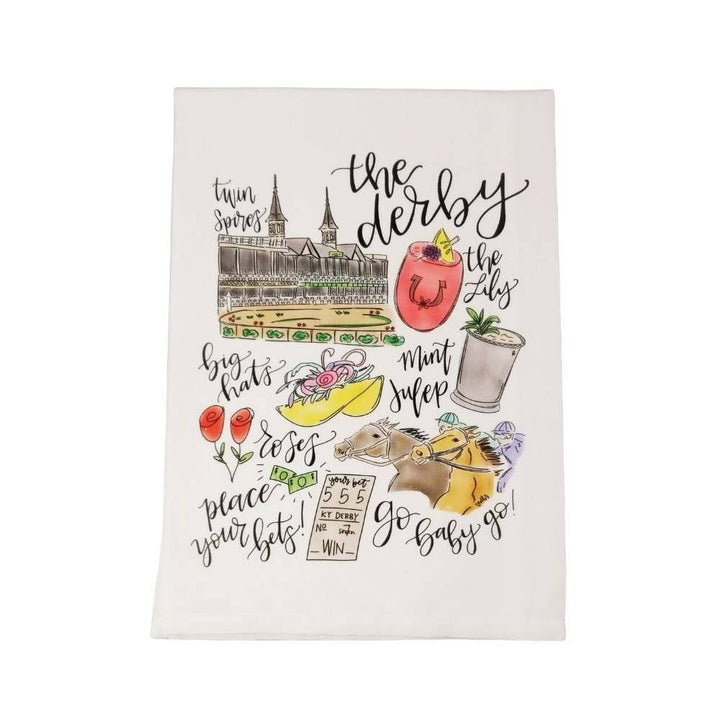 the
derby
twin
spires
the
Lily
big
hats
mint
julep
roses
place
your
bets!
your bet
5 5 5
KY DERBY
No 7
seven
WIN
go
baby
go!